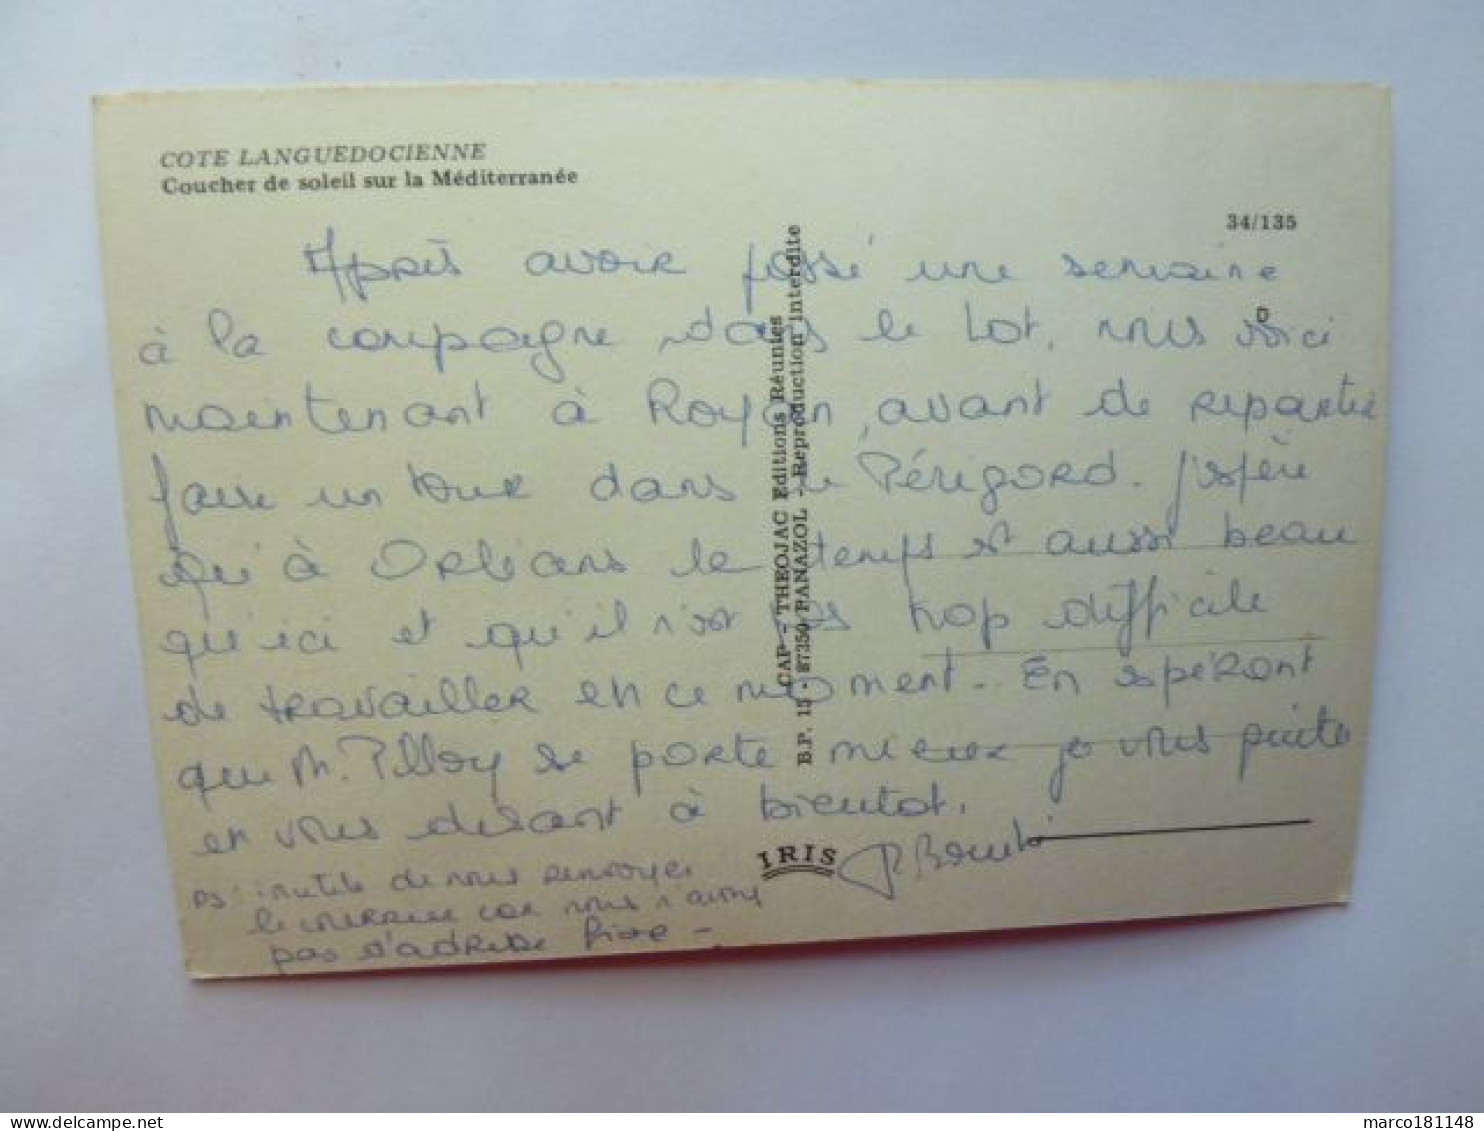 COTE LANGUEDOCIENNE
Coucher de soleil sur la Méditerranée
34/135
Après avoir passé une semaine
à la campagne dans le Lot, nous voici
maintenant à Royan, avant de repartir
faire un tour dans le Périgord. J'espère
qu'à Orléans le temps est aussi beau
qu'ici et qu'il n'est pas trop difficile
de travailler en ce moment. En espérant
que M. Pilloy se porte mieux je vous quitte
en vous disant à bientôt.
PS: inutile de nous renvoyer
le courrier car nous n'avons
pas d'adresse fixe -
CAP - THEOJAC Editions Réunies
B.P. 15 - 87350 PANAZOL - Reproduction interdite
IRIS
D
marco181148